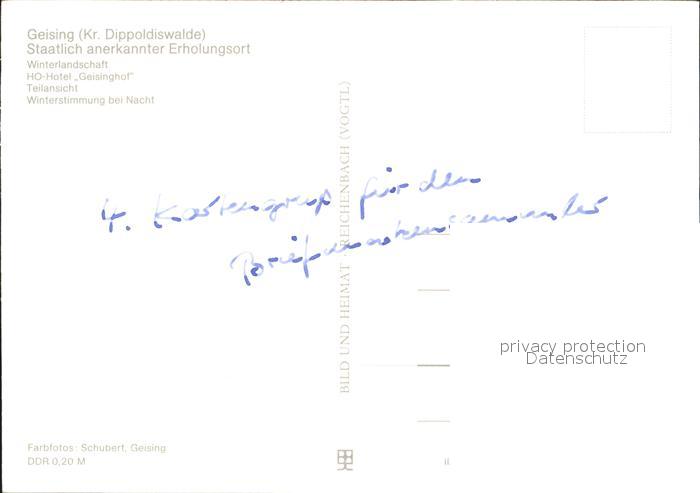 Geising (Kr. Dippoldiswalde)
Staatlich anerkannter Erholungsort
Winterlandschaft
HO-Hotel „Geisinghof"
Teilansicht
Winterstimmung bei Nacht
4. Kartengruß für den
Briefmarkensammler
BILD UND HEIMAT · REICHENBACH (VOGTL)
privacy protection
Datenschutz
Farbfotos: Schubert, Geising
DDR 0,20 M